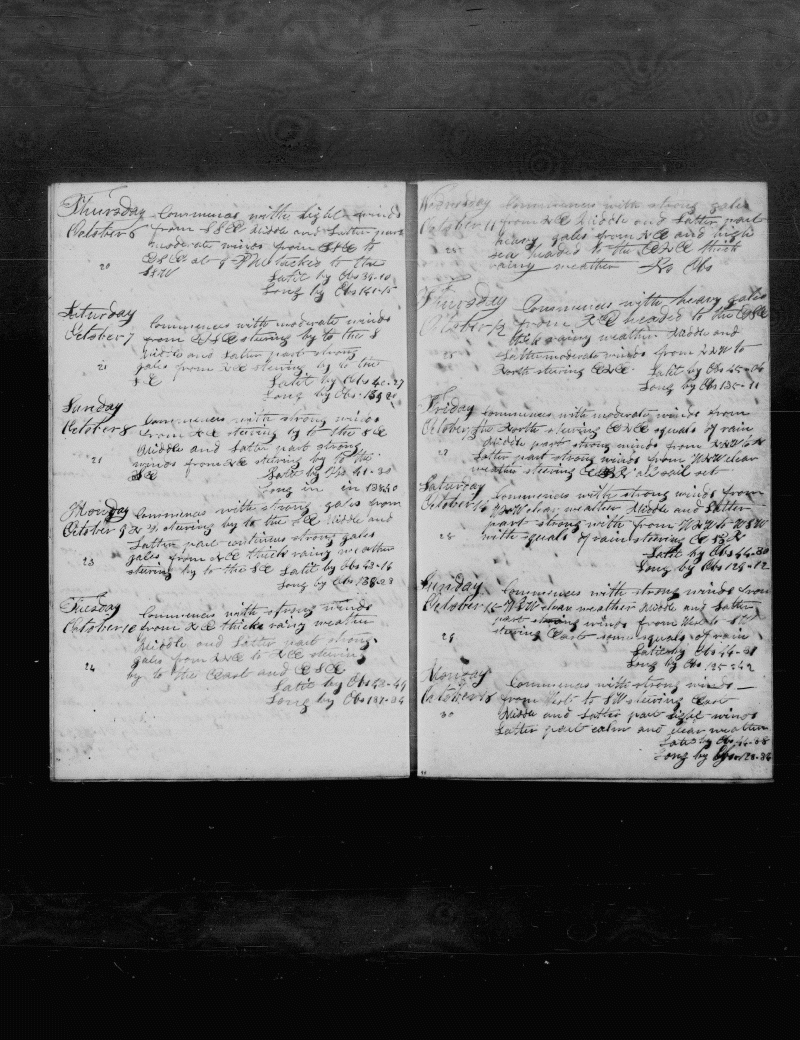 Thursday Commences with light winds
October 6 from SSE Middle and Latter part
moderate winds from ESE to
20 ESE at 9 PM tacked to the
SSW Latit by Obs 39-10
Long by Obs 141-15
Saturday
October 7 Commences with moderate winds
from ESE stering by to the S
21 middle and Latter part strong
gales from NE stering by to the
SE Latit by Obs 40-27
Long by Obs 139
Sunday
October 8 Commences with strong winds
from NE stering by to the SE
21 Middle and Latter part strong
winds from NE stering by to the
SE Latit by Obs 41-30
Long in
Monday Commences with strong gales from
October 9 stering by to the SE Middle and
Latter part continues strong gales
23 gales from NE thick rainy weather
stering by to the SE Latit by Obs 43-16
Long by Obs 138-23
Tuesday Commences with strong winds
October 10 from NE thick rainy weather
Middle and Latter part strong
24 gales from NNE to NE stering
by to the East and ESE
Latit by Obs 43-49
Long by Obs 137-34
Wensday Commences with strong gales
October 11 from NE Middle and Latter part
25 heavy gales from NE and high
sea headed to the ENE thick
rainy weather No Obs
Thursday Commences with heavy gales
October 12 from NE headed to the ESE
thick rainy weather Middle and
Latter moderate winds from NNW to
North stering ENE Latit by Obs 45-04
Long by Obs 135-11
Friday Commences with moderate winds from
October 13 the North stering ENE squals of rain
27 Middle part strong winds from NNW to
Latter part strong winds from WNW clear
weather stering all sail set
Saturday Commences with strong winds from
October 14 WNW clear weather Middle and Latter
part strong with from WNW to WSW
28 with squals of rain stering
Latit by Obs 44-30
Long by Obs 129-12
Sunday Commences with strong winds from
October 15 WSW clear weather Middle and Latter
part strong winds from West to SW
29 stering East some squals of rain
Latit by Obs 44-31
Long by Obs 125-42
Monday Commences with strong winds
October 16 from West to SW stering East
30 Middle and Latter part light winds
Latter part calm and clear weather
Latit by Obs 44-38
Long by Obs 123-36